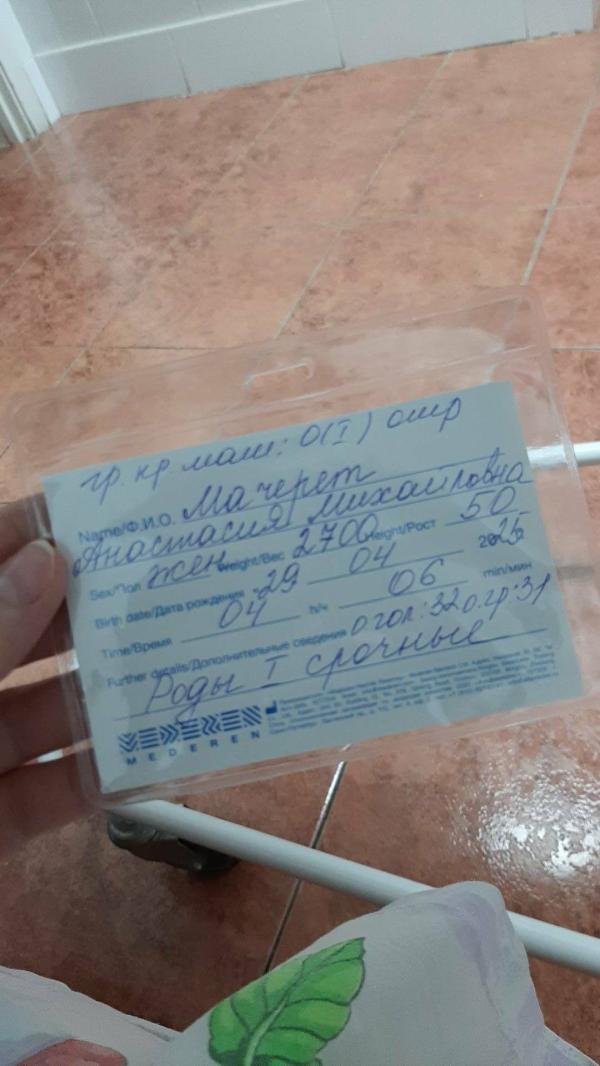 гр. кр. мат: O(I) отр
Name/Ф.И.О. Мачерет
Анастасия Михайловна
Sex/Пол жен Weight/Вес 2700 Height/Рост 50
Birth date/Дата рождения 29 04 2025
Time/Время 04 h/ч 06 min/мин
Further details/Дополнительные сведения о гол: 32 о.гр: 31
Роды I срочные
MEDEREN